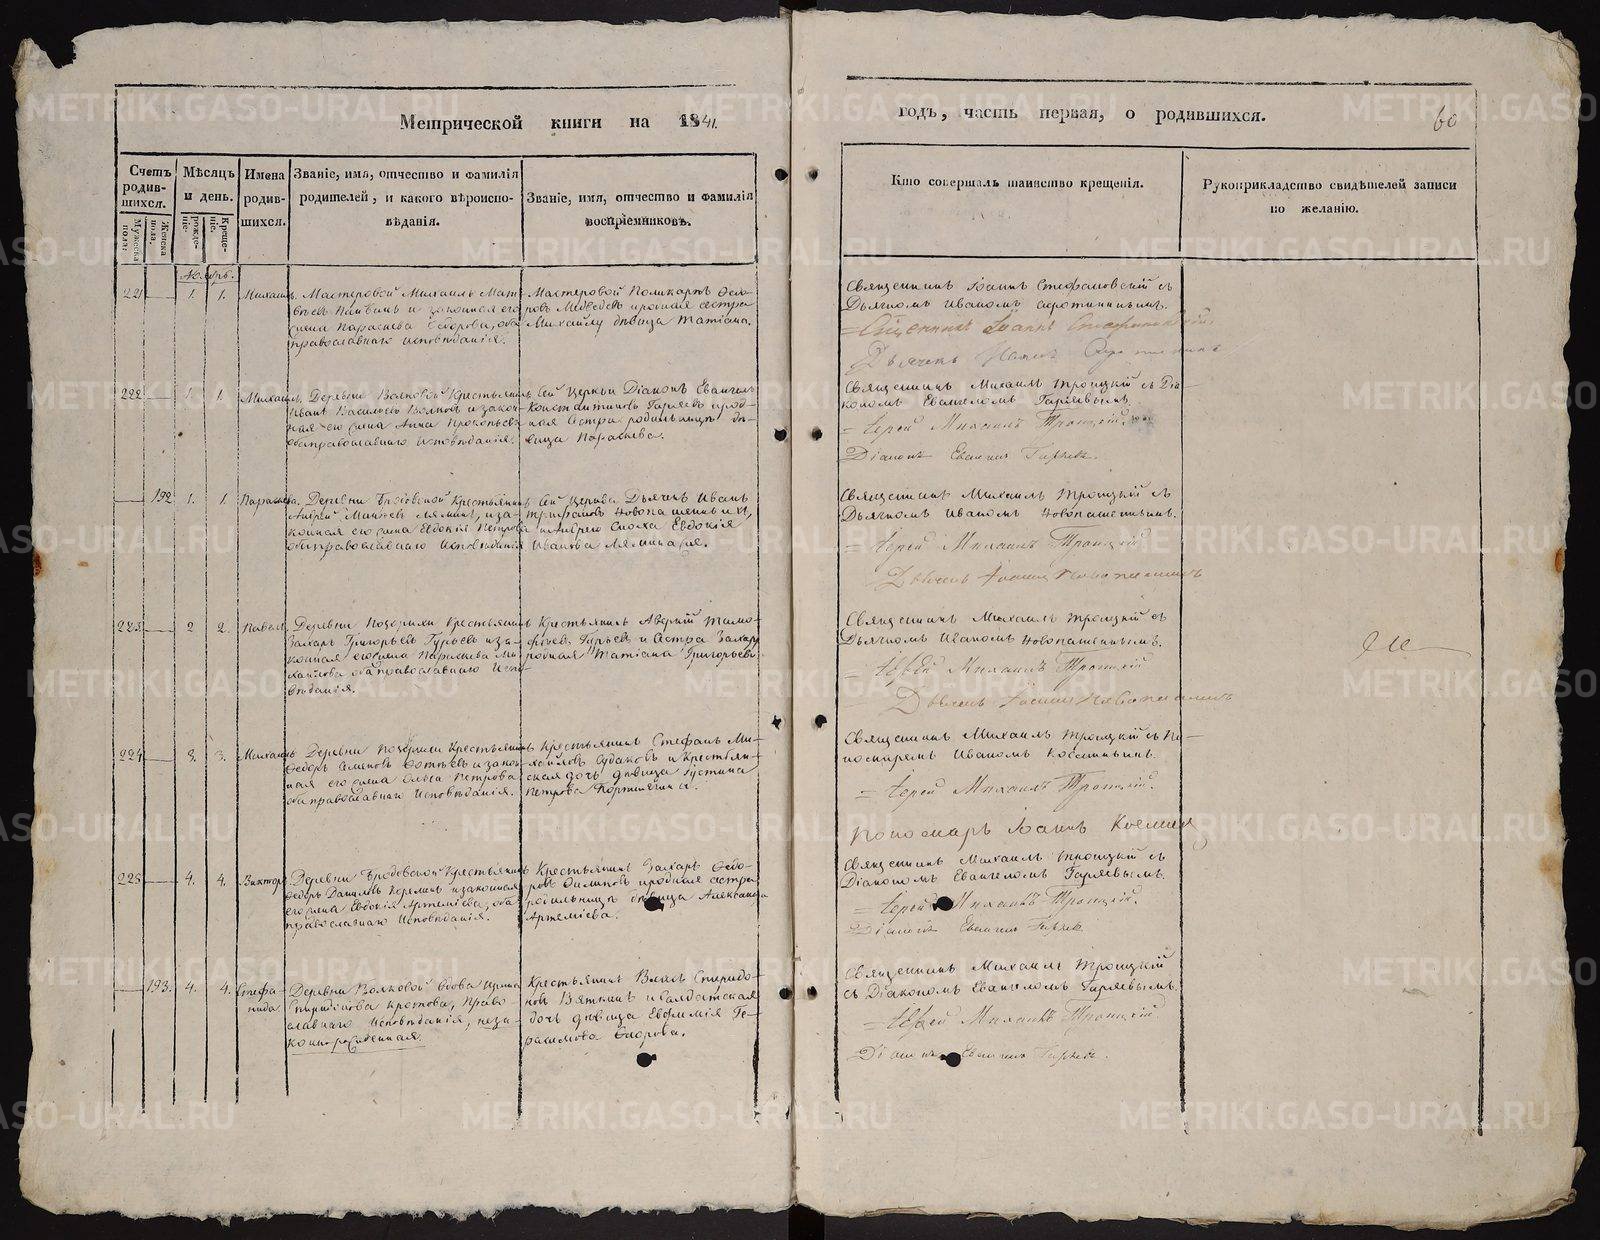 Метрической книги на 1841.
годъ, часть первая, о родившихся.
60
Счетъ родив-
шихся.
Мужеска пола.
Женска пола.
Мѣсяцъ
и день.
рожде-
ніе.
Креще-
ніе.
Имена
родив-
шихся.
Званіе, имя, отчество и фамилія
родителей, и какого вѣроиспо-
вѣданія.
Званіе, имя, отчество и фамилія
воспріемниковъ.
Кто совершалъ таинство крещенія.
Рукоприкладство свидѣтелей записи
по желанію.
221
1. 1.
Михаилъ.
Мастеровой Михаилъ Мат-
вѣевъ и законная его
жена Параскева Ѳедорова, оба
православнаго исповѣданія.
Мастеровой Поликарпъ Ѳедо-
ровъ Медведевъ и родная сестра
Михаилу дѣвица Татіана.
Священникъ Іоаннъ Стефановскій съ
Дьячкомъ Иваномъ
Священникъ Іоаннъ Стефановскій.
Дьячекъ
222
1. 1.
Михаилъ.
Деревни Волковой Крестьянинъ
Иванъ Васильевъ Волковъ и закон-
ная его жена Анна Прокопьева
оба православнаго исповѣданія.
Сей Церкви Діаконъ Евангелъ
Константиновъ Гаряевъ и род-
ная сестра родильницы дѣ-
вица Параскева.
Священникъ Михаилъ Троицкій съ Діа-
кономъ Евангеломъ Гаряевымъ.
= Іерей Михаилъ Троицкій.
Діаконъ Евангелъ Гаряевъ.
192
1. 1.
Параскева.
Деревни Бродовской Крестьянинъ
Андрей Лямин, и за-
конная его жена Евдокія Петрова
оба православнаго исповѣданія
Сей Церкви Дьячекъ Иванъ
Трифоновъ Новопашенный,
и Андрею сноха Евдокія
Иванова Лямина.
Священникъ Михаилъ Троицкій съ
Дьячкомъ Иваномъ Новопашеннымъ.
= Іерей Михаилъ Троицкій
Дьячекъ Іоаннъ
223
2 2.
Павелъ.
Деревни Позарихи Крестьянинъ
Захаръ Григорьевъ Гурьевъ и за-
конная его жена Параскева Ми-
хайлова оба православнаго Испо-
вѣданія.
Крестьянинъ Аверкій Тимо-
фѣевъ Гурьевъ и сестра Захару
родная Татіана Григорьева.
Священникъ Михаилъ Троицкій съ
Дьячкомъ Иваномъ Новопашеннымъ.
= Іерей Михаилъ Троицкій
Дьячекъ Іоаннъ
224
3. 3.
Михаилъ
Деревни Позарихи Крестьянинъ
Ѳедоръ Семеновъ и закон-
ная его жена Ольга Петрова
оба православнаго исповѣданія.
Крестьянинъ Стефанъ Ми-
хайловъ Судаковъ и Крестьян-
ская дочь дѣвица Іустина
Петрова
Священникъ Михаилъ Троицкій съ По-
номаремъ Иваномъ
= Іерей Михаилъ Троицкій.
Пономарь Іоаннъ
225
4. 4.
Викторъ
Деревни Бродовской Крестьянинъ
Ѳедоръ Даниловъ и законная
его жена Евдокія Артеміева, оба
православнаго исповѣданія.
Крестьянинъ Захаръ Ѳедо-
ровъ и родная сестра
родильницы дѣвица Александра
Артеміева.
Священникъ Михаилъ Троицкій съ
Діакономъ Евангеломъ Гаряевымъ.
= Іерей Михаилъ Троицкій.
Діаконъ Евангелъ Гаряевъ
193.
4. 4.
Стефа-
нида.
Деревни Волковой вдова Ирина
Спиридонова Кротова, Право-
славнаго исповѣданія, неза-
коннорожденная.
Крестьянинъ Власъ Спиридо-
новъ Вяткинъ и Солдатская
дочь дѣвица Евфимія Ге-
расимова Ѳедорова.
Священникъ Михаилъ Троицкій
съ Діакономъ Евангеломъ Гаряевымъ.
= Іерей Михаилъ Троицкій
Діаконъ Евангелъ Гаряевъ.
METRIKI.GASO-URAL.RU